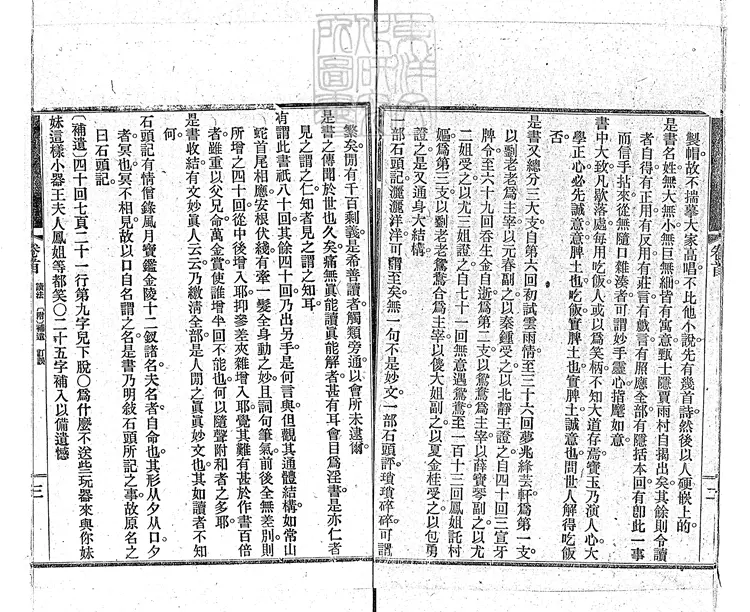 製帽故不揣摹大家高唱不比他小說先有幾首詩然後以人硬嵌上的
是書名姓無大無小無巨無細皆有寓意甄士隱賈雨村自揭出矣其餘則令讀
者自得有正用有反用有莊言有戲言有照應全部有隱括本回有卽此一事
而信手拈來從無隨口雜湊者可謂妙手靈心指麾如意
書中大致凡歇落處每用吃飯人或以爲笑柄不知大道存焉寶玉乃演人心大
學正心必先誠意意脾土也吃飯實脾土也實脾土誠意也問世人解得吃飯
否
是書又總分三大支自第六回初試雲雨情至三十六回夢兆絳芸軒爲第一支
以劉老老爲主宰以元春副之以秦鍾受之以北靜王證之自四十回三宣牙
牌令至六十九回吞生金自逝爲第二支以鴛鴦爲主宰以薛寶琴副之以尤
二姐受之以尤三姐證之自七十一回無意遇鴛鴦至一百十三回鳳姐託村
嫗爲第三支以劉老老鴛鴦合爲主宰以傻大姐副之以夏金桂受之以包勇
證之是又通身大結構
一部石頭記灑灑洋洋可謂至矣無一句不是妙文一部石頭評瑣瑣碎碎可謂
繁矣閒有千百剩義是希善讀者觸類旁通以會所未逮爾
是書之傳聞於世也久矣痛無眞能讀眞能解者甚有耳會目爲淫書是亦仁者
見之謂之仁知者見之謂之知耳
有謂此書祇八十回其餘四十回乃出另手是何言與但觀其通體結構如常山
蛇首尾相應安根伏綫有牽一髮全身動之妙且詞句筆氣前後全無差別則
所增之四十回從中後增入耶抑參差夾雜增入耶覺其難有甚於作書百倍
者雖重以父兄命萬金賞使誰增半回不能也何以隨聲附和者之多耶
是書收結有文妙眞人云云乃繳淸全部是人閒之眞眞妙文也其如讀者不知
何
石頭記有情僧錄風月寶鑑金陵十二釵諸名夫名者自命也其形从夕从口夕
者冥也冥不相見故以口自名謂之名是書乃明敘石頭所記之事故原名之
曰石頭記
〔補遺〕四十回七頁二十一行第九字兒下脫〇爲什麼不送些玩器來與你妹
妹這樣小器王夫人鳳姐等都笑〇二十五字補入以備遺憾
卷首
二
卷首
讀法
〔附〕補遺
訂誤
三